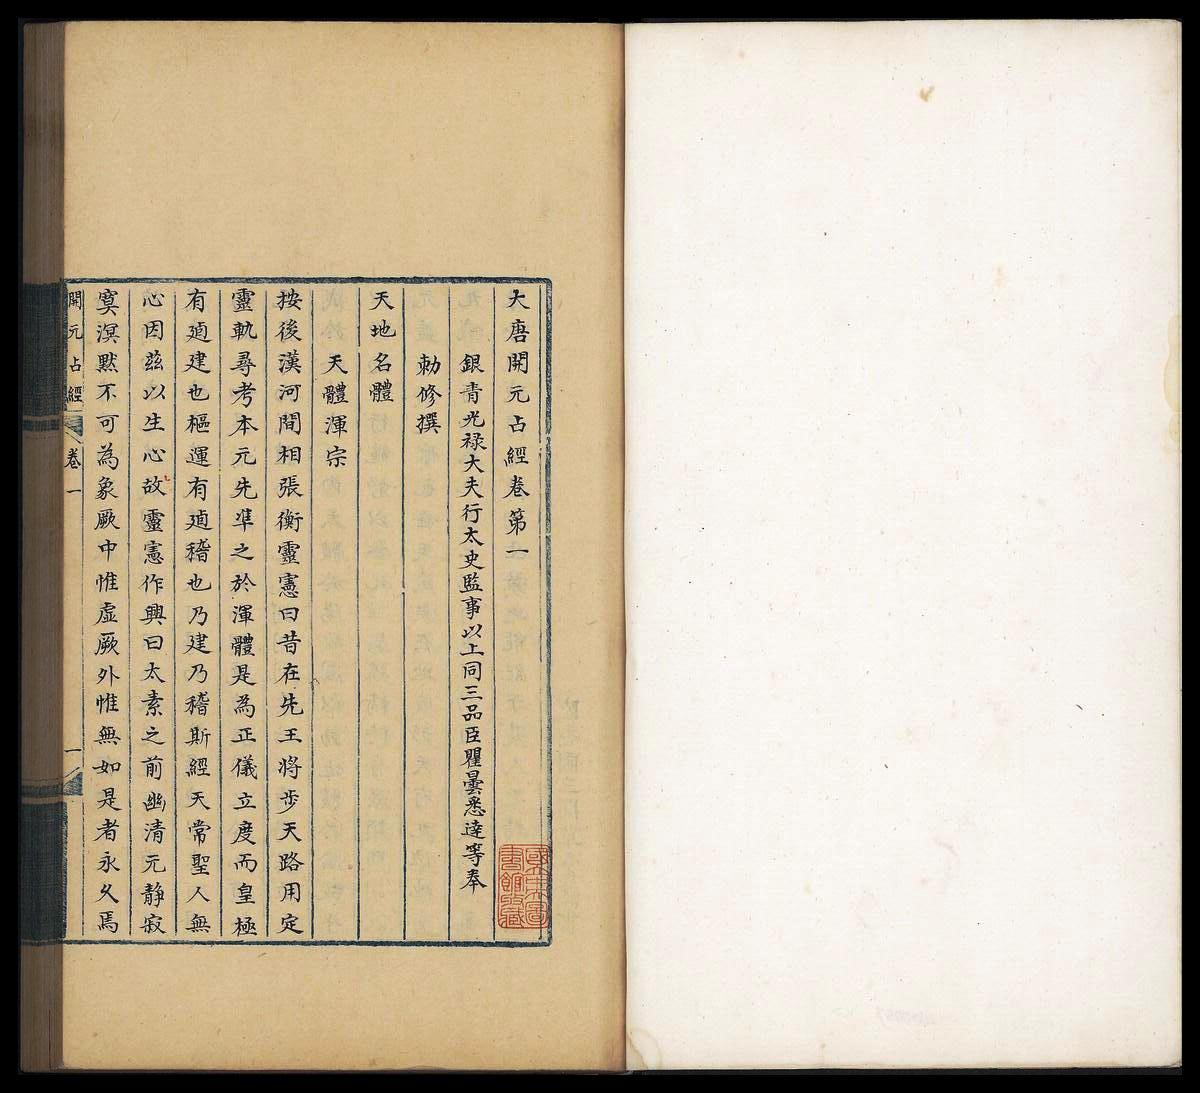 大唐開元占經卷第一
銀青光禄大夫行太史監事以上同三品臣瞿曇悉達等奉
勅修撰
天地名體
天體渾宗
按後漢河間相張衡靈憲曰昔在先王將步天路用定
靈軌尋考本元先凖之於渾體是為正儀立度而皇極
有逌建也樞運有逌稽也乃建乃稽斯經天常聖人無
心因茲以生心故靈憲作興曰太素之前幽清元静寂
寞溟默不可為象厥中惟虛厥外惟無如是者永久焉
開元占經
卷一
一
國立中央圖書館藏